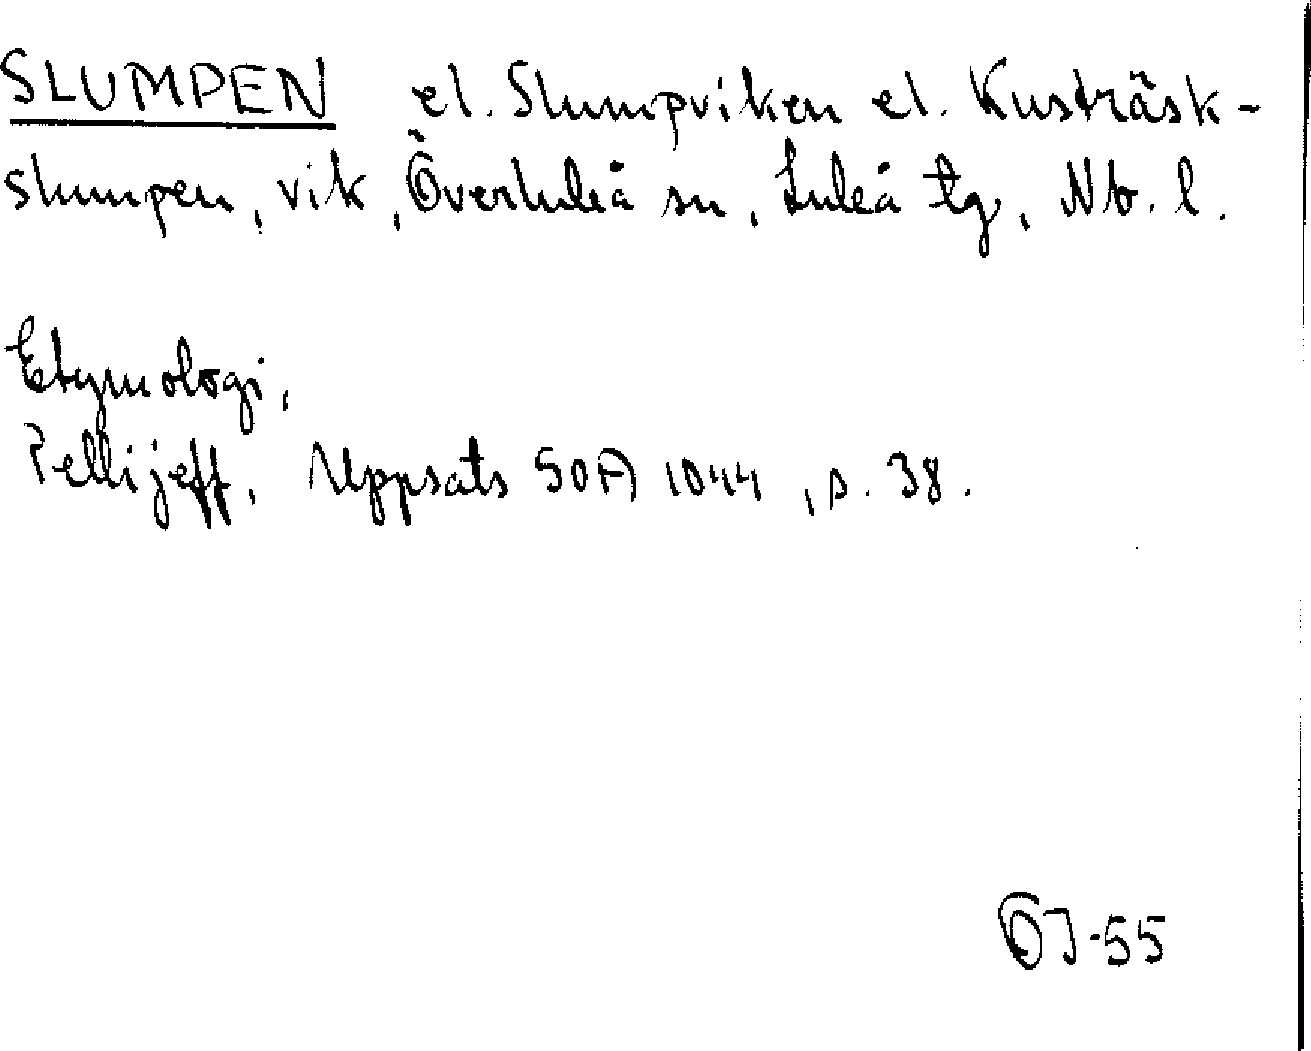 SLUMPEN el. Slumpviken el. Kusträsk-
slumpen, vik, Överluleå sn, Luleå tg, Nb. l.
Etymologi,
Pellijeff, Uppsats SOFA 1044, s. 38.
ÖJ-55